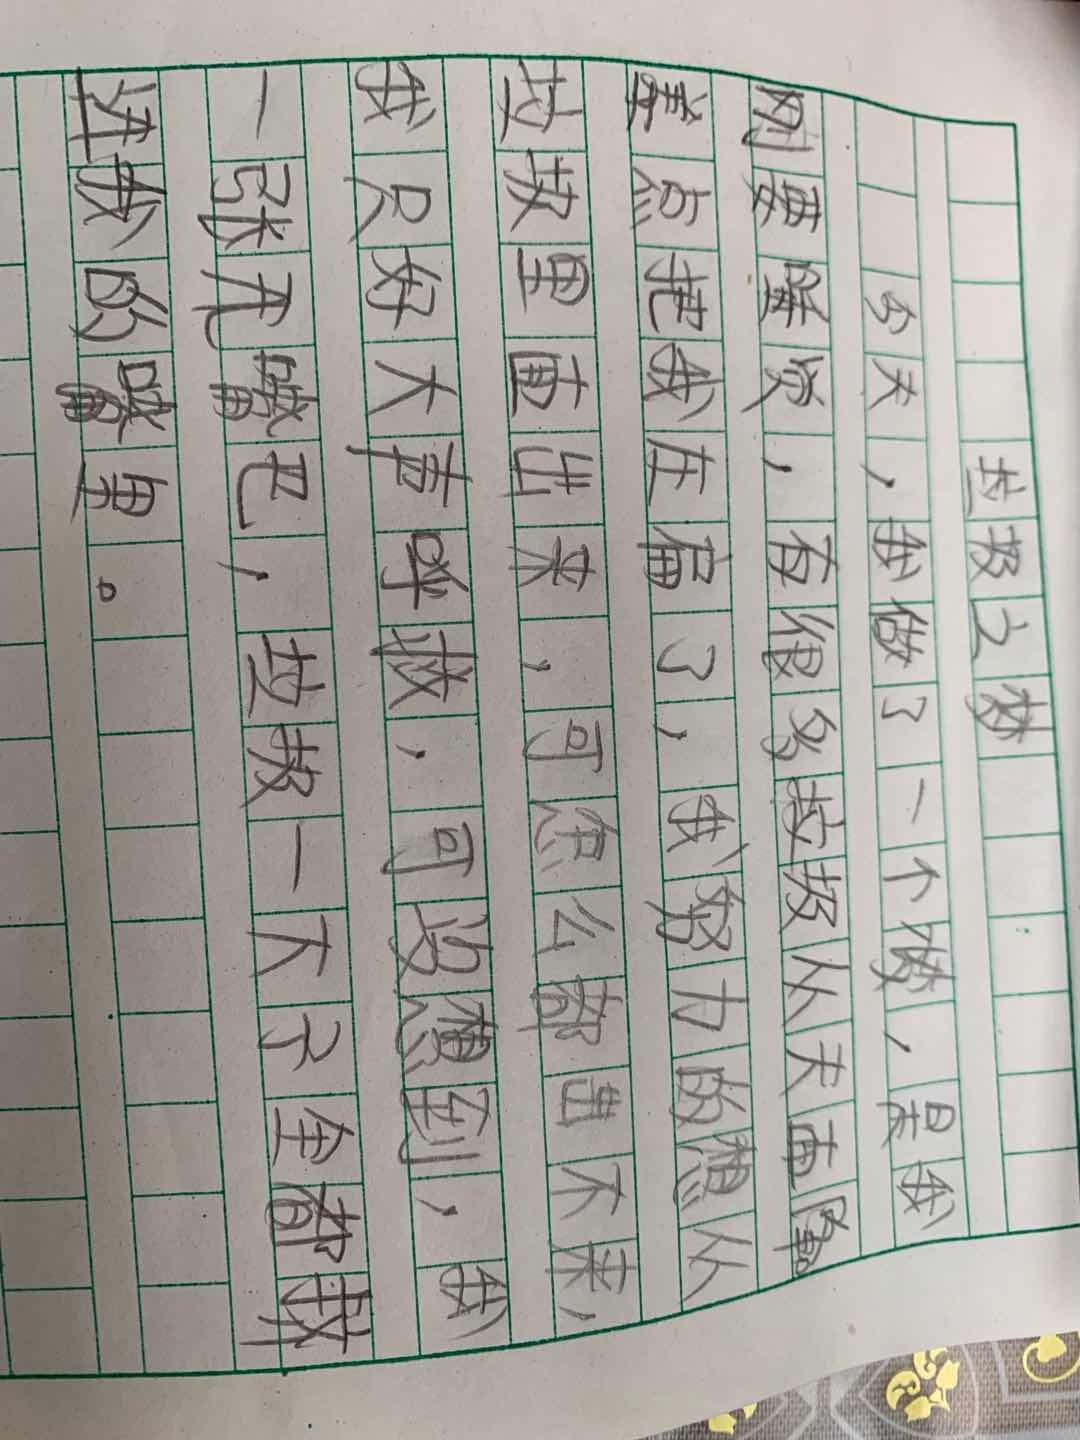 垃圾之梦
今天，我做了一个梦，是我
刚要睡觉，有很多垃圾从天而降
差点把我压扁了，我努力的想从
垃圾里面出来，可怎么都出不来，
我只好大声呼救，可没想到，我
一张开嘴巴，垃圾一下子全都掉
进我的嘴里。